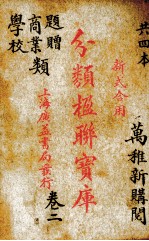 共四本
萬雅新購閱
新式合用
分類楹聯寶庫
上海廣益書局發行
卷二
題贈
商業類
學校